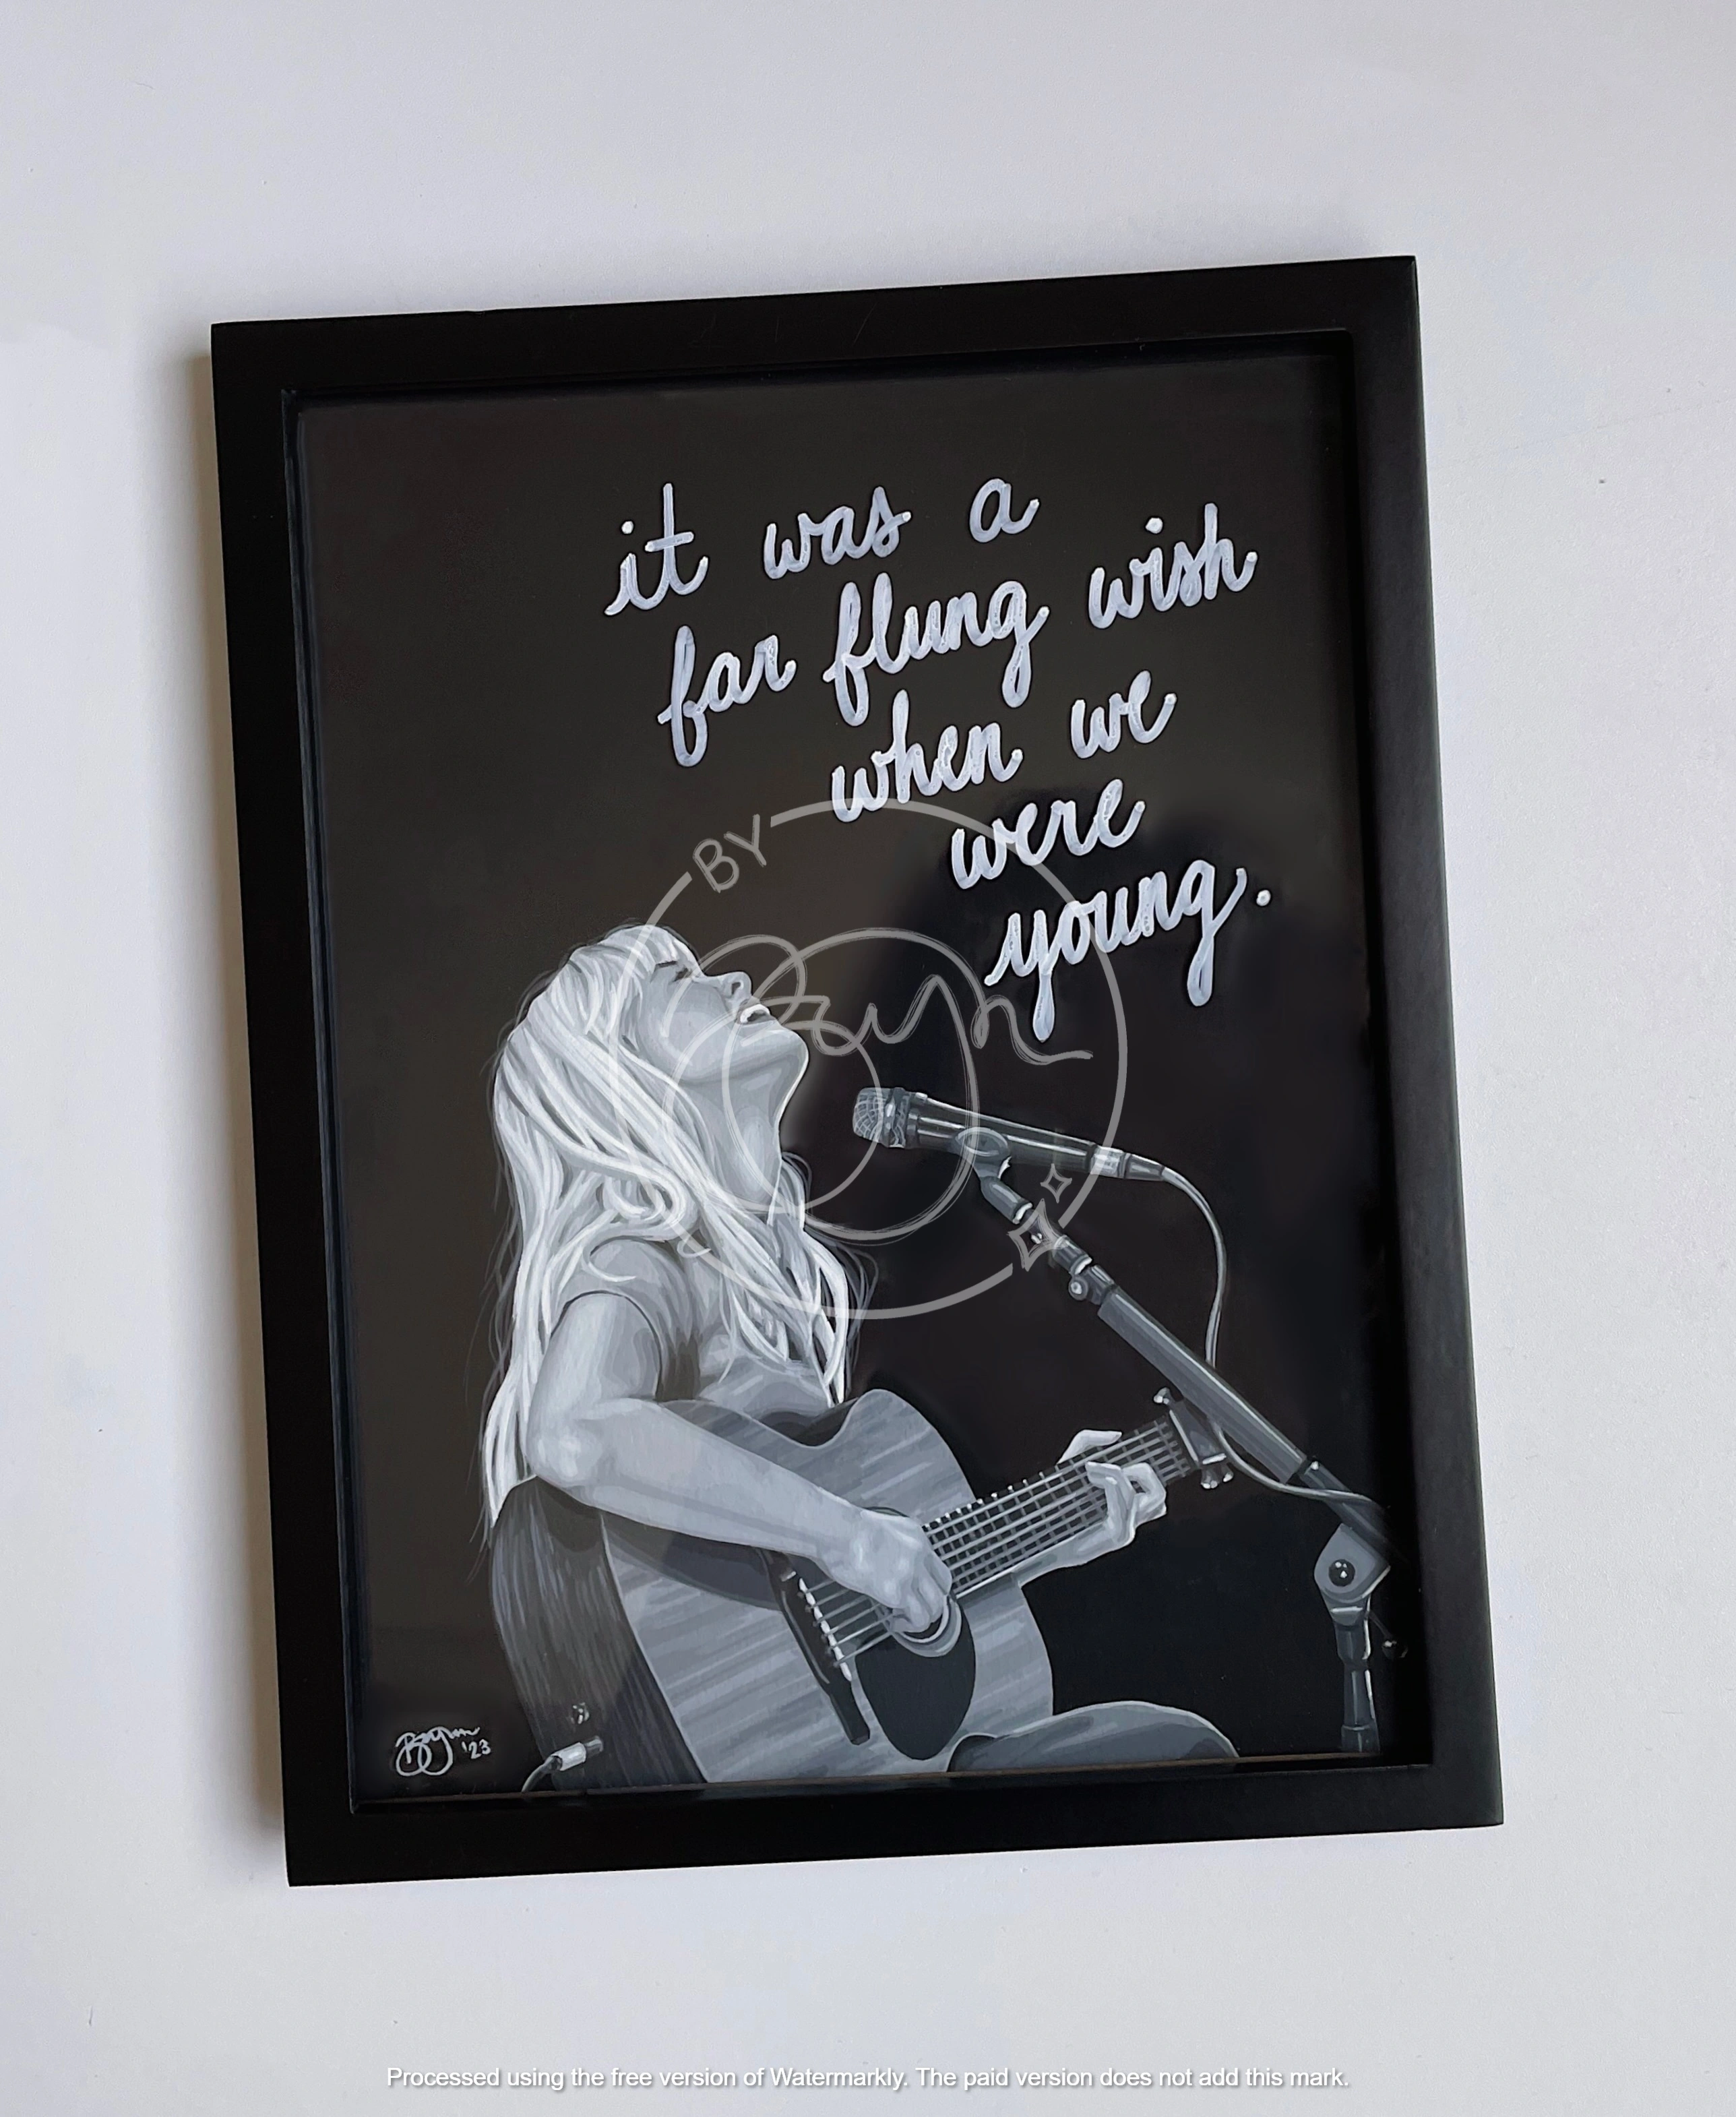 it was a
far flung wish
when we
were
young.
BY
Bryn
Bryn '23
Processed using the free version of Watermarkly. The paid version does not add this mark.